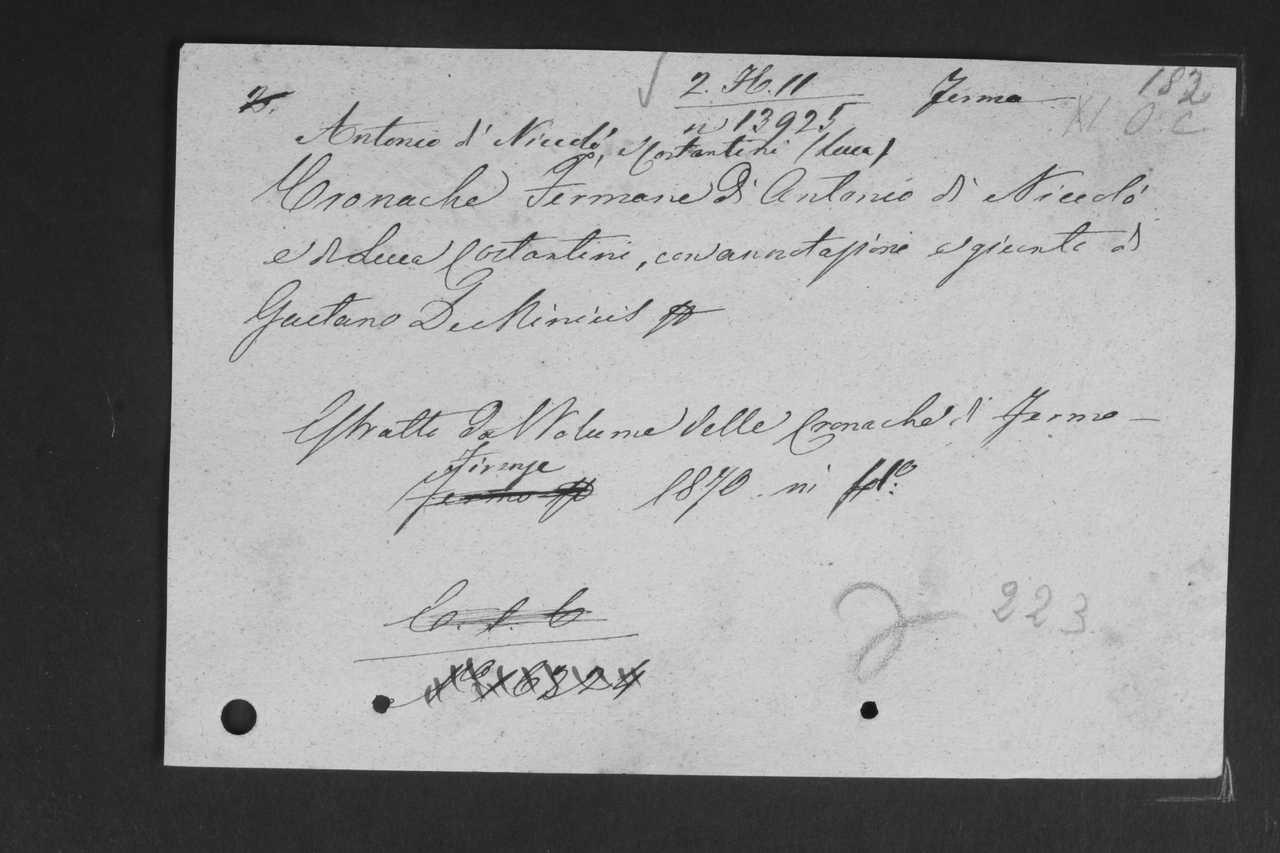 2. H. 11 Fermo 182
n 13925 XI O. C.
Antonio d' Niccolò, Costantini (Luca)
Cronache Fermane di Antonio di Niccolò
e di Luca Costantini, con annotazioni e giunte di
Gaetano De Minicis
Estratto dal Volume delle Cronache di Fermo -
Firenze
Fermo 1870 in 4°:
C. 1. 6
N° 6324
223